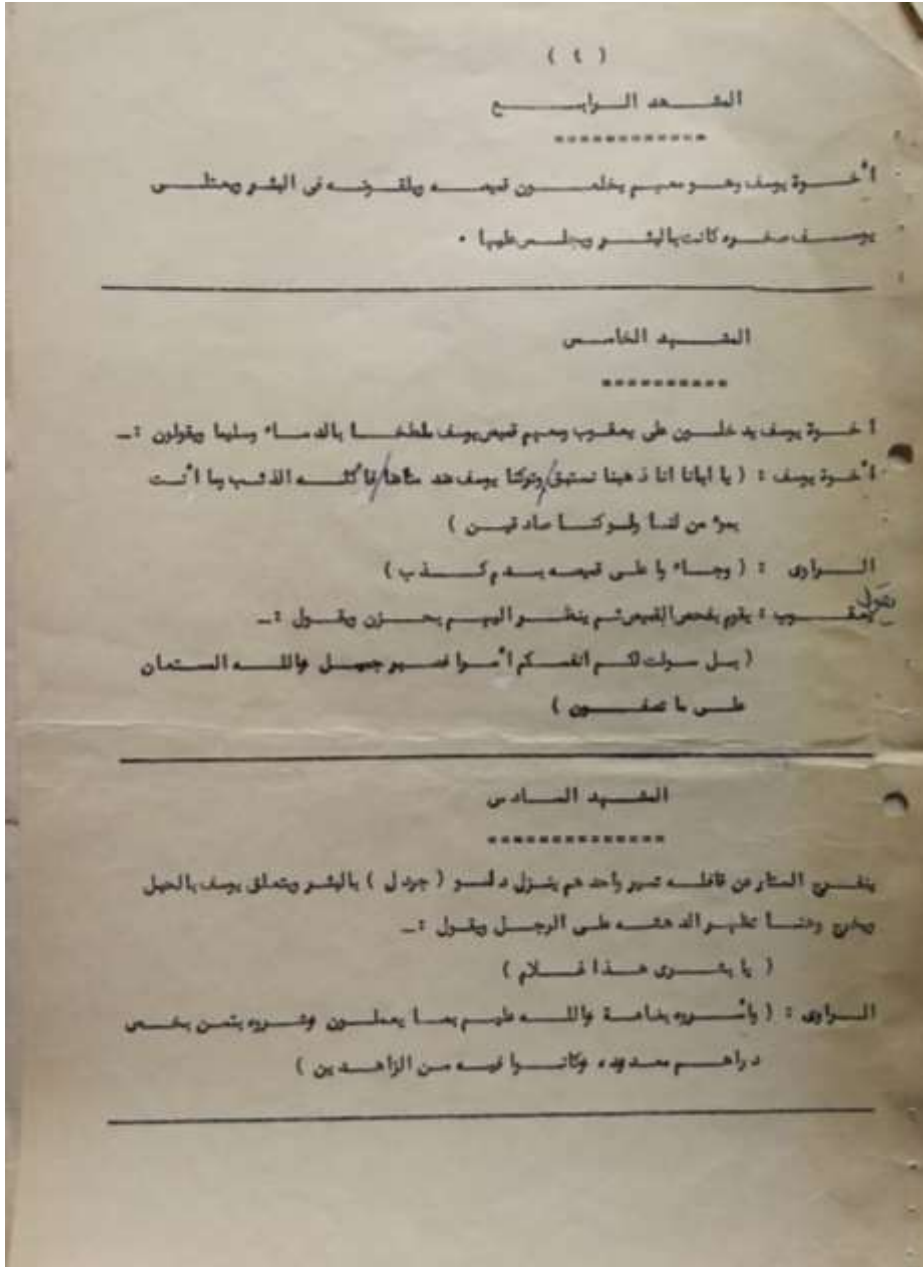 ( ٤ )
المشهد الرابع
============
أخوة يوسف وهو معهم يخلعون قميصه ويلقونه فى البئر ويعتلى
يوسف صخره كانت بالبئر ويجلس عليها .
المشهد الخامس
==========
اخوة يوسف يدخلون على يعقوب ومعهم قميص يوسف ملطخا بالدماء وسليما ويقولون :ـ
أخوة يوسف : ( يا ابانا انا ذهبنا نستبق وتركنا يوسف عند متاعنا فأكله الذئب وما أنت
بمؤمن لنا ولو كنا صادقين )
الراوى : ( وجاءوا على قميصه بدم كذب )
يقول
يعقوب : يقوم بفحص القميص ثم ينظر اليهم بحزن ويقول :ـ
( بل سولت لكم انفسكم أمرا فصبر جميل والله المستعان
على ما تصفون )
المشهد السادس
==============
ينفرج الستار عن قافله تسير واحدهم ينزل دلو ( جردل ) بالبئر ويتعلق يوسف بالحبل
ويخرج وهنا تظهر الدهشه على الرجل ويقول :ـ
( يا بشرى هذا غلام )
الراوى : ( وأسروه بضاعة والله عليم بما يعملون وشروه بثمن بخس
دراهم معدوده وكانوا فيه من الزاهدين )